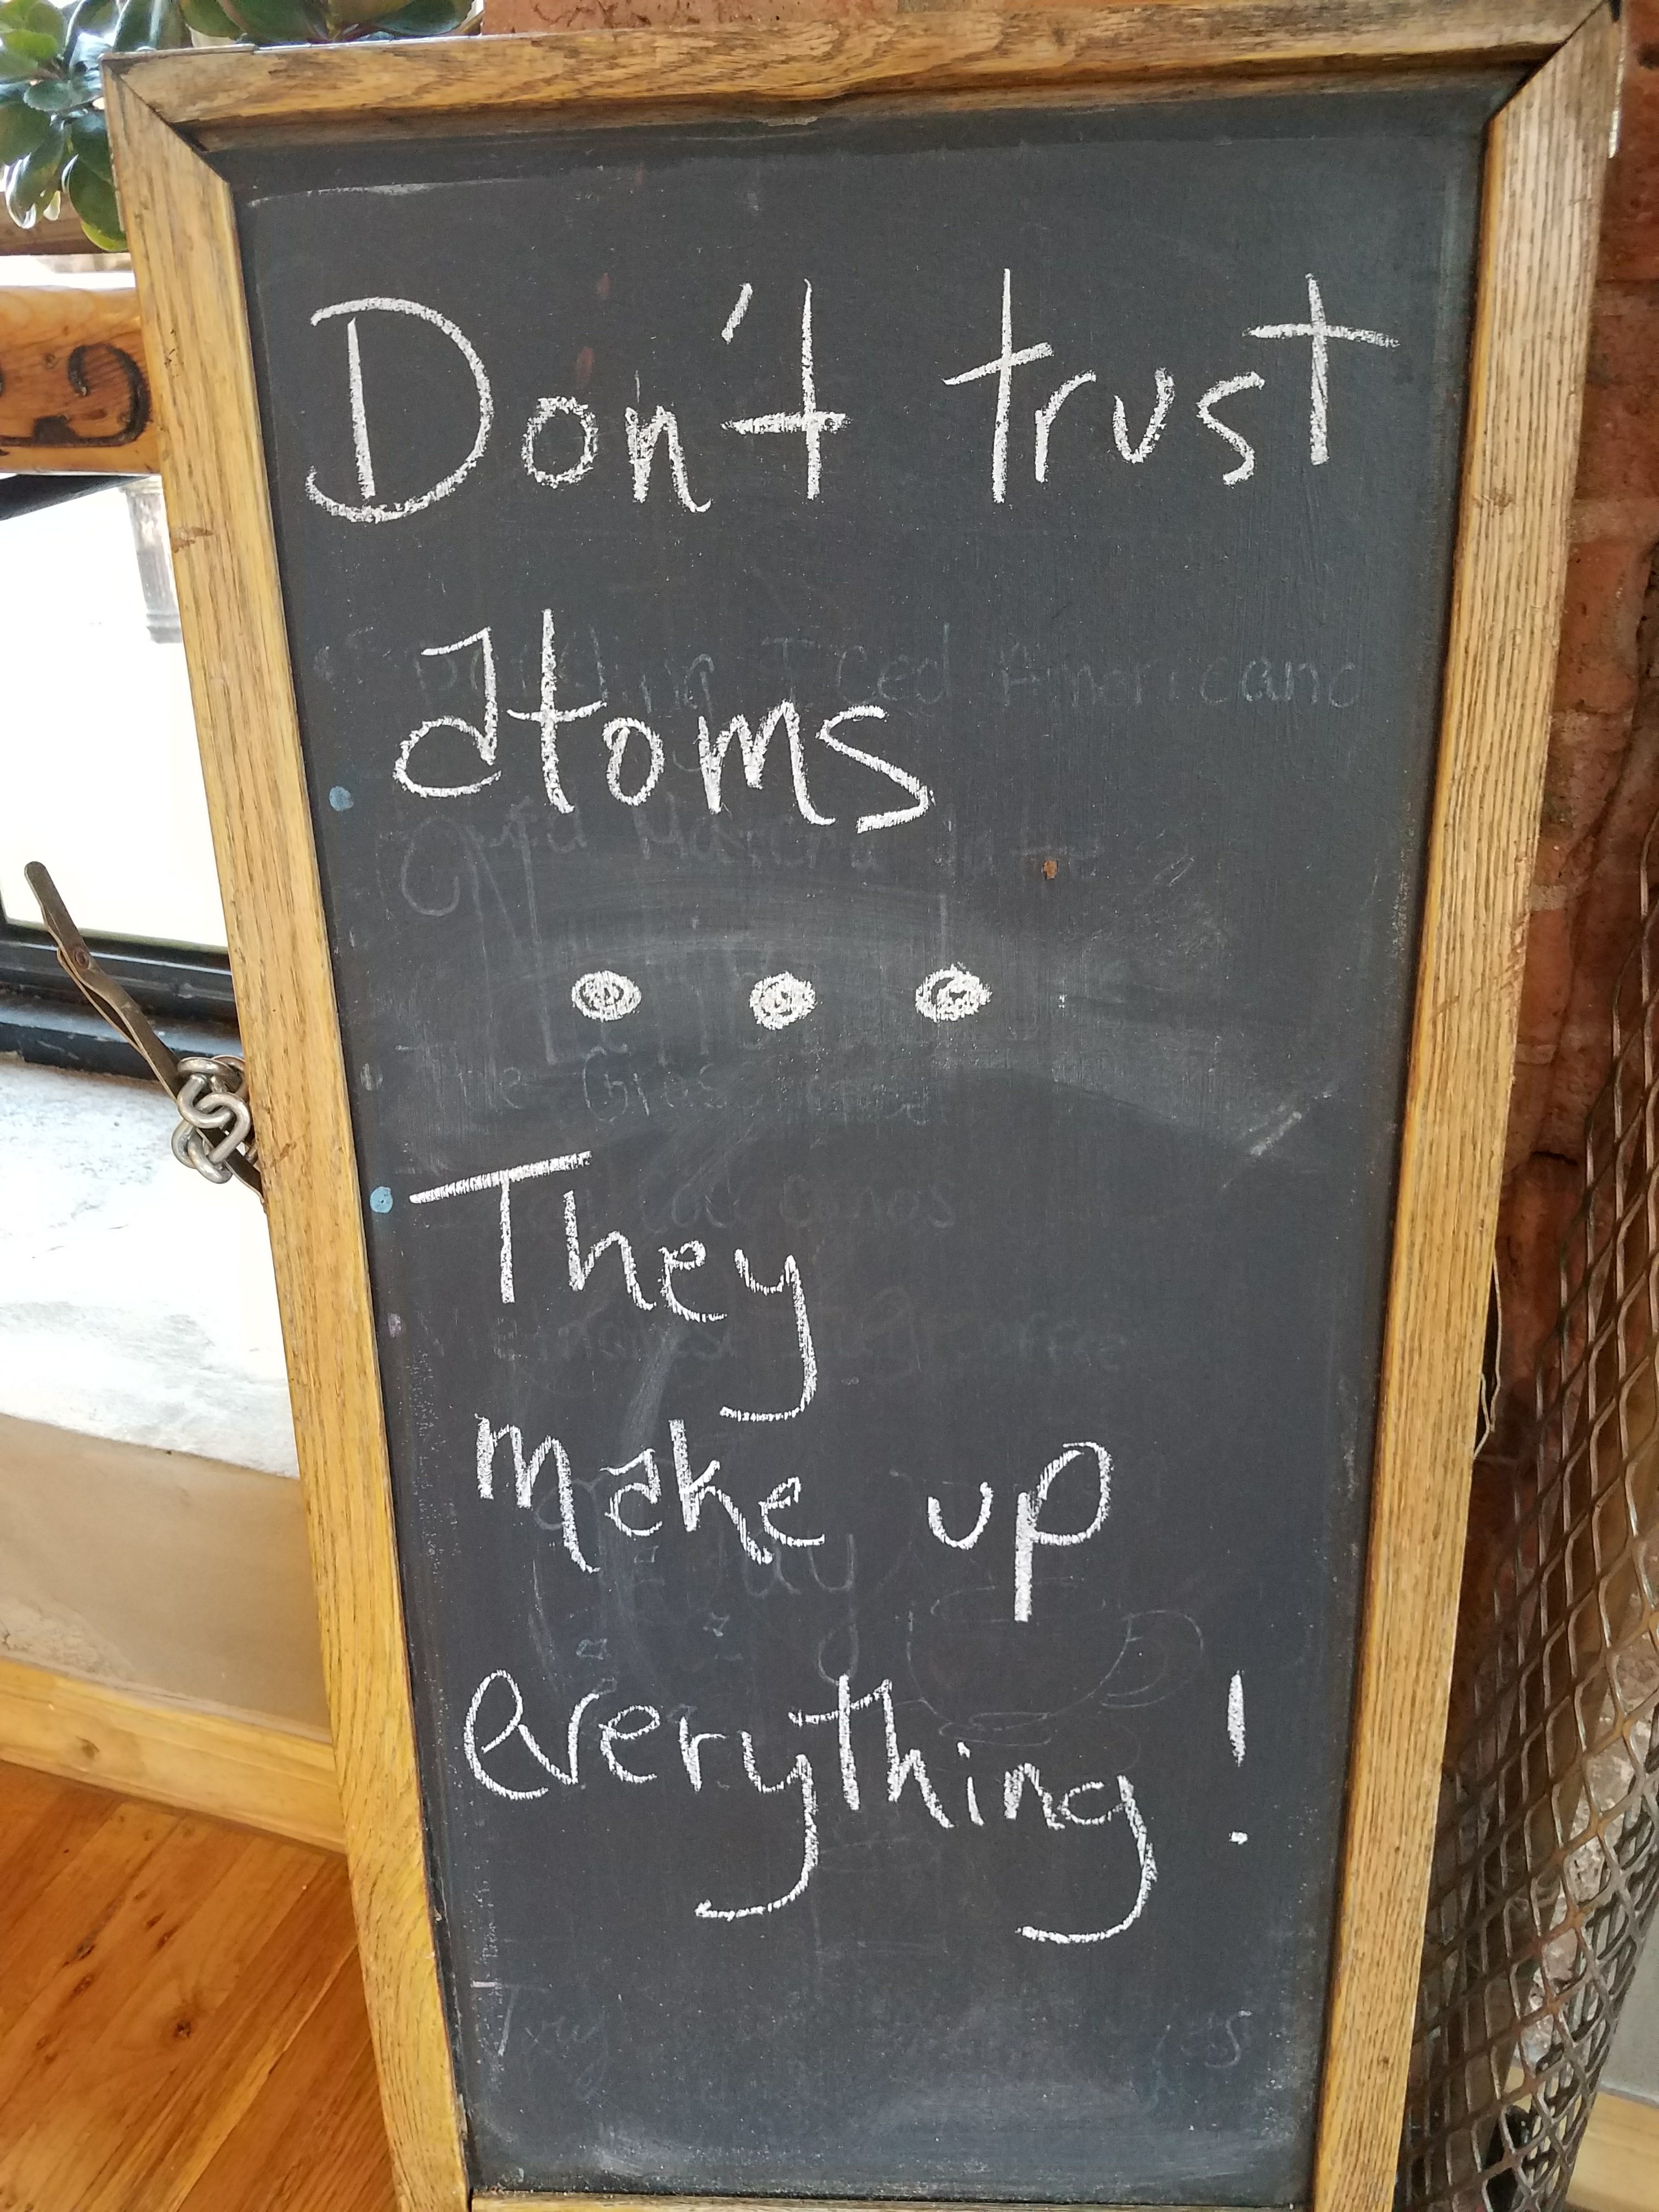 Don't trust
atoms
...
They
make up
everything!